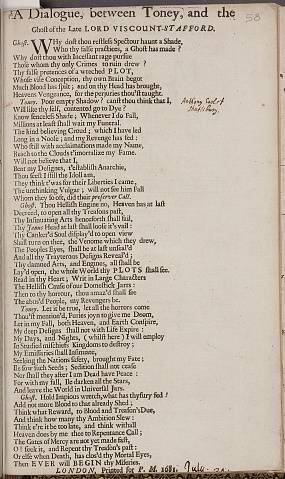 A Dialogue, between Toney, and the
58
Ghost of the Late LORD VISCOUNT-STAFFORD.
Ghost. Why dost thou restless Spectour haunt a Shade,
Who thy false practices, a Ghost has made?
Why dost thou with Incessant rage pursue
Those whom thy only Crimes to ruin drew?
Thy false pretences of a wretched PLOT,
Whose vile Conception, thy own Brain begot
Much Blood has spilt; and on thy Head has brought,
Heavens Vengeance, for the perjuries thou'st taught.
Toney. Poor empty Shadow! canst thou think that I,
Anthony Earl of
Will like thy self, contented go to Dye?
Shaftsbury.
Know senceless Shade; Whenever I do Fall,
Millions at least shall wait my Funeral.
The kind believing Croud; which I have led
Long in a Noose; and my Revenge has fed:
Who still with acclamations made my Name,
Reach to the Clouds t'immortalize my Fame.
Will not believe that I,
Beat my Designes, t'establish Anarchie,
Thou seest I still the Idoll am,
They think t'was for their Liberties I came,
The unthinking Vulgar, will not see him Fall
Whom they so oft, did their preserver Call.
Ghost. Thou Hellish Engine no, Heaven has at last
Decreed, to open all thy Treasons past,
Thy Insinuating Arts henceforth shall fail,
Thy Janus Head at last shall loose it's vail:
Thy Canker'd Soul display'd to open view
Shall turn on thee, the Venome which they drew,
The Peoples Eyes, shall be at last unseal'd
And all thy Trayterous Designs Reveal'd;
Thy damned Arts, and Engines, all shall be
Lay'd open, the whole World thy PLOTS shall see.
Read in thy Heart; Writ in Large Characters
The Hellish Cause of our Domestick Jarrs:
Then to thy horrour, thou amaz'd shall see
The abus'd People, my Revengers be.
Toney. Let it be true, let all the horrors come
Thou'st mention'd, Furies joyn to give me Doom,
Let in my Fall, both Heaven, and Earth Conspire,
My deep Designs shall not with Life Expire:
My Days, and Nights, (whilst here) I will employ
In Studied mischiefs Kingdoms to destroy;
My Emissaries shall Insinuate,
Seeking the Nations safety, brought my Fate;
Ile sow such Seeds; Sedition shall not cease
Nor shall they after I am Dead have Peace:
For with my fall, Ile darken all the Stars,
And leave the World in Universal Jars.
Ghost. Hold Impious wretch, what has thy fury fed?
Add not more Blood to that already Shed;
Think what Reward, to Blood and Treason's Due,
And think how many thy Ambition Slew:
Think e're it be too late, and think withall
Heaven does by me thee to Repentance Call;
The Gates of Mercy are not yet made fast,
O! seek it, and Repent thy Treason's past:
Or else when Death, has clos'd thy Mortal Eyes,
Then EVER will BEGIN thy Miseries.
LONDON, Printed for P. M. 1681. July.